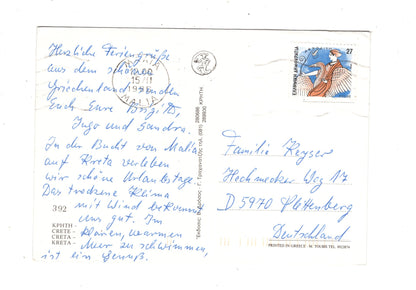 Herzliche Feriengrüße
aus dem schönen
Griechenland senden
Euch Eure Birgitt,
Ingo und Sandra.
In der Bucht von Malia
auf Kreta verleben
wir schöne Urlaubstage.
Das trockene Klima
mit Wind bekommt
uns gut. Im
klaren, warmen
Meer zu schwimmen,
ist ein Genuß.
392
ΚΡΗΤΗ -
CRETE -
CRETA -
KRETA -
ΜΑΛΙΑ
27
ΕΛΛΗΝΙΚΗ ΔΗΜΟΚΡΑΤΙΑ
Familie Keyser
Hechmecker Weg 17
D 5970 Plettenberg
Deutschland
PRINTED IN GREECE